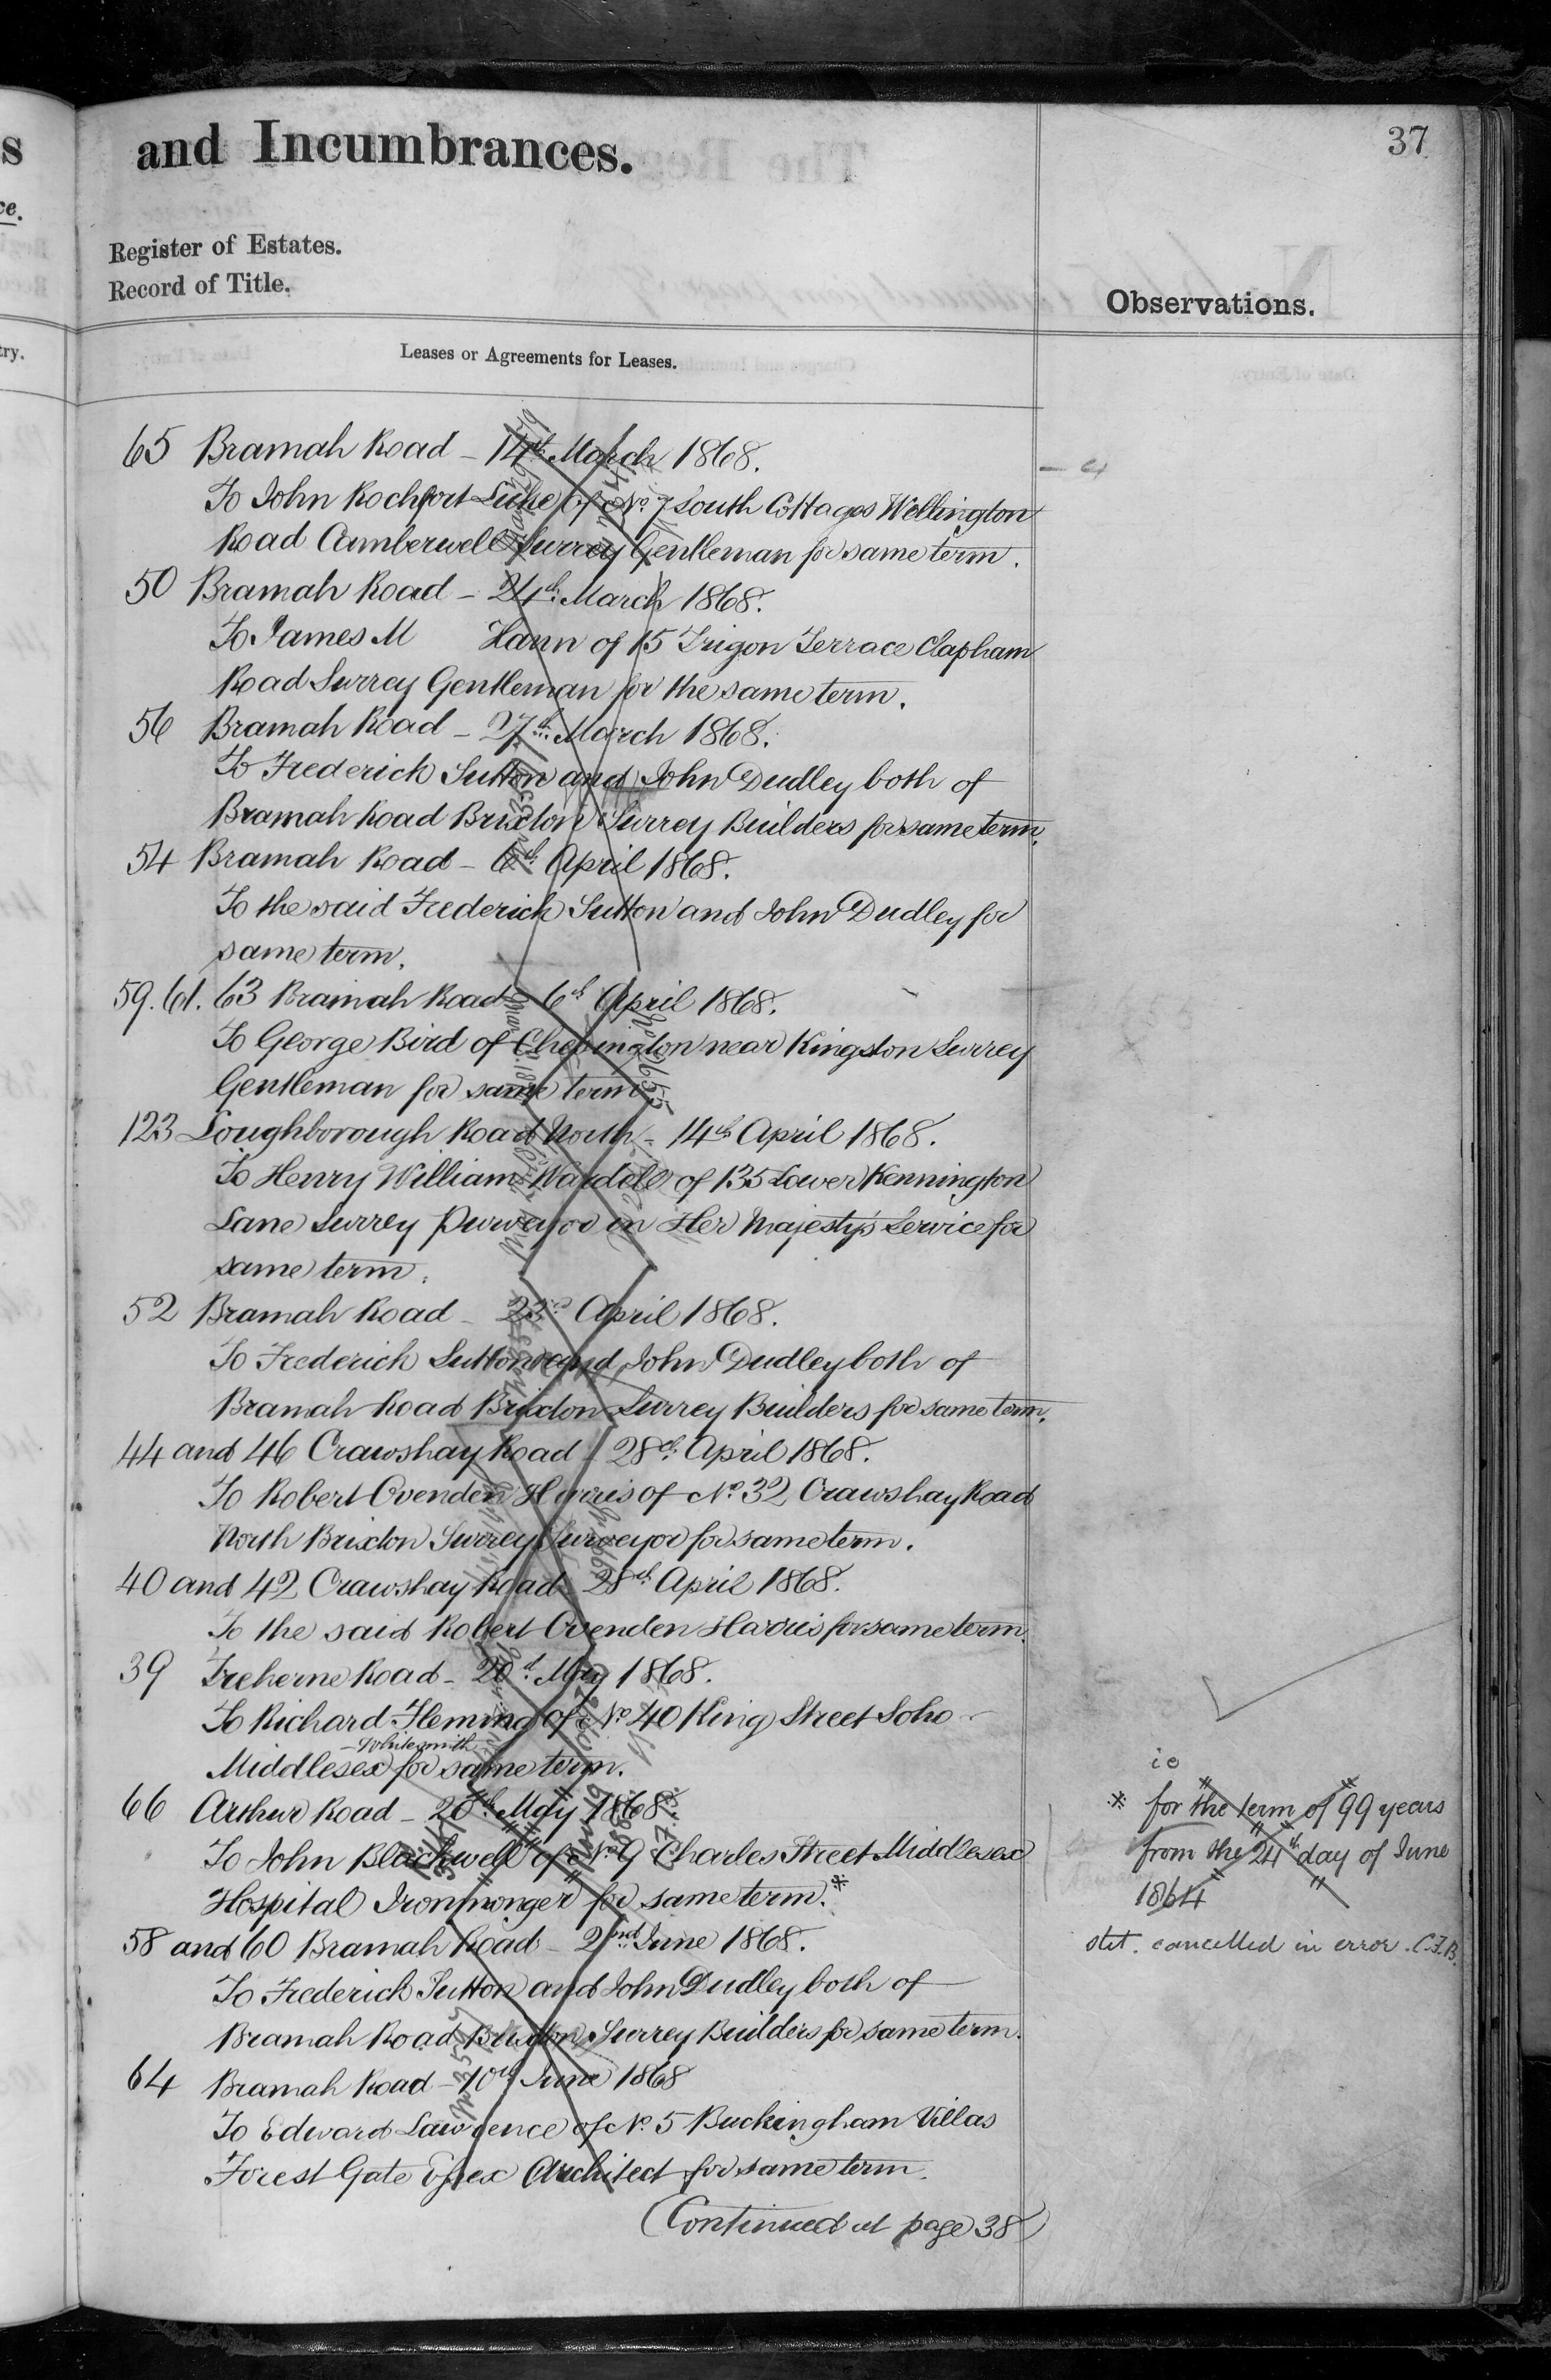 and Incumbrances.
37
Register of Estates.
Record of Title.
Observations.
Leases or Agreements for Leases.
65 Bramah Road - 14th March 1868.
To John Rochfort Luke of No. 7 South Cottages Wellington
Road Camberwell Surrey Gentleman for same term.
50 Bramah Road - 24th March 1868.
To James M Hann of 15 Trigon Terrace Clapham
Road Surrey Gentleman for the same term.
56 Bramah Road - 27th March 1868.
To Frederick Sutton and John Dudley both of
Bramah Road Brixton Surrey Builders for same term.
54 Bramah Road - 6th April 1868.
To the said Frederick Sutton and John Dudley for
same term.
59. 61. 63 Bramah Road - 6th April 1868.
To George Bird of Chessington near Kingston Surrey
Gentleman for same term.
123 Loughborough Road North - 14th April 1868.
To Henry William Wardell of 135 Lower Kennington
Lane Surrey Purveyor in Her Majesty's Service for
same term.
52 Bramah Road - 23d April 1868.
To Frederick Sutton and John Dudley both of
Bramah Road Brixton Surrey Builders for same term.
44 and 46 Crawshay Road - 28th April 1868.
To Robert Ovenden Harris of No. 32 Crawshay Road
North Brixton Surrey Surveyor for same term.
40 and 42 Crawshay Road - 28th April 1868.
To the said Robert Ovenden Harris for same term.
39 Treherne Road - 20th May 1868.
To Richard Fleming of No 40 King Street Soho
Whitesmith
Middlesex for same term.
66 Arthur Road - 20th May 1868.
To John Blackwell of No. 9 Charles Street Middlesex
Hospital Ironmonger for same term.*
58 and 60 Bramah Road - 2nd June 1868.
To Frederick Sutton and John Dudley both of
Bramah Road Brixton Surrey Builders for same term.
64 Bramah Road - 10th June 1868
To Edward Lawrence of No. 5 Buckingham Villas
Forest Gate Essex Architect for same term.
(Continued at page 38)
ie
* for the term of 99 years
from the 24th day of June
1864
stet. cancelled in error. C.F.B.